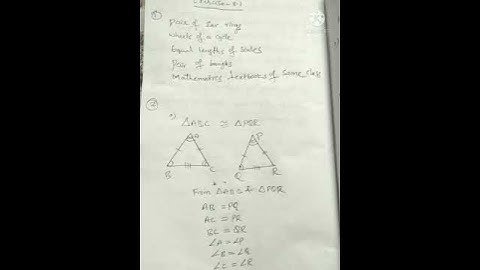 ①
Pair of Ear rings
Wheels of a cycle
Equal lengths of scales
Pair of bangles
Mathematics textbooks of same class
②
△ABC ≅ △PQR
A P
B C Q R
From △ABC & △PQR
AB = PQ
AC = PR
BC = QR
∠A = ∠P
∠B = ∠Q
∠C = ∠R